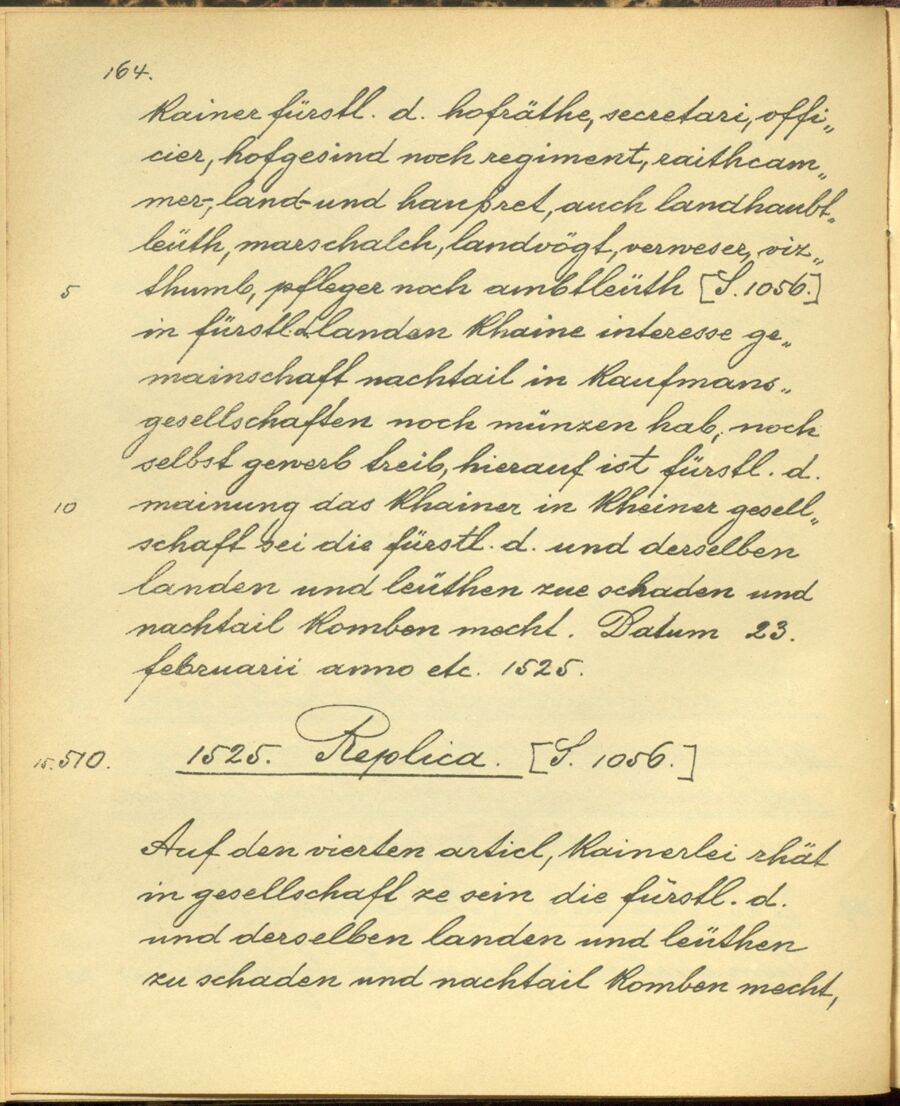 164.
kainer fürstl. d. hofräthe, secretari, offi„
cier, hofgesind noch regiment, raithcam„
mer-, land- und hauszret, auch landhaubt„
leüth, marschalch, landvögt, verweser, viz„
5 thumb, pfleger noch ambtleüth [S. 1056.]
in fürstl. d. landen khaine interesse ge„
mainschaft nachtail in kaufmans„
gesellschaften noch münzen hab, noch
selbst gewerb treib, hierauf ist fürstl. d.
10 mainung das khainer in kheiner gesell„
schaft sei die fürstl. d. und derselben
landen und leüthen zue schaden und
nachtail komben mecht. Datum 23.
februarii anno etc. 1525.
15. 510. 1525. Replica. [S. 1056.]
Auf den vierten articl, kainerlei rhät
in gesellschaft ze sein die fürstl. d.
und derselben landen und leüthen
zu schaden und nachtail komben mecht,